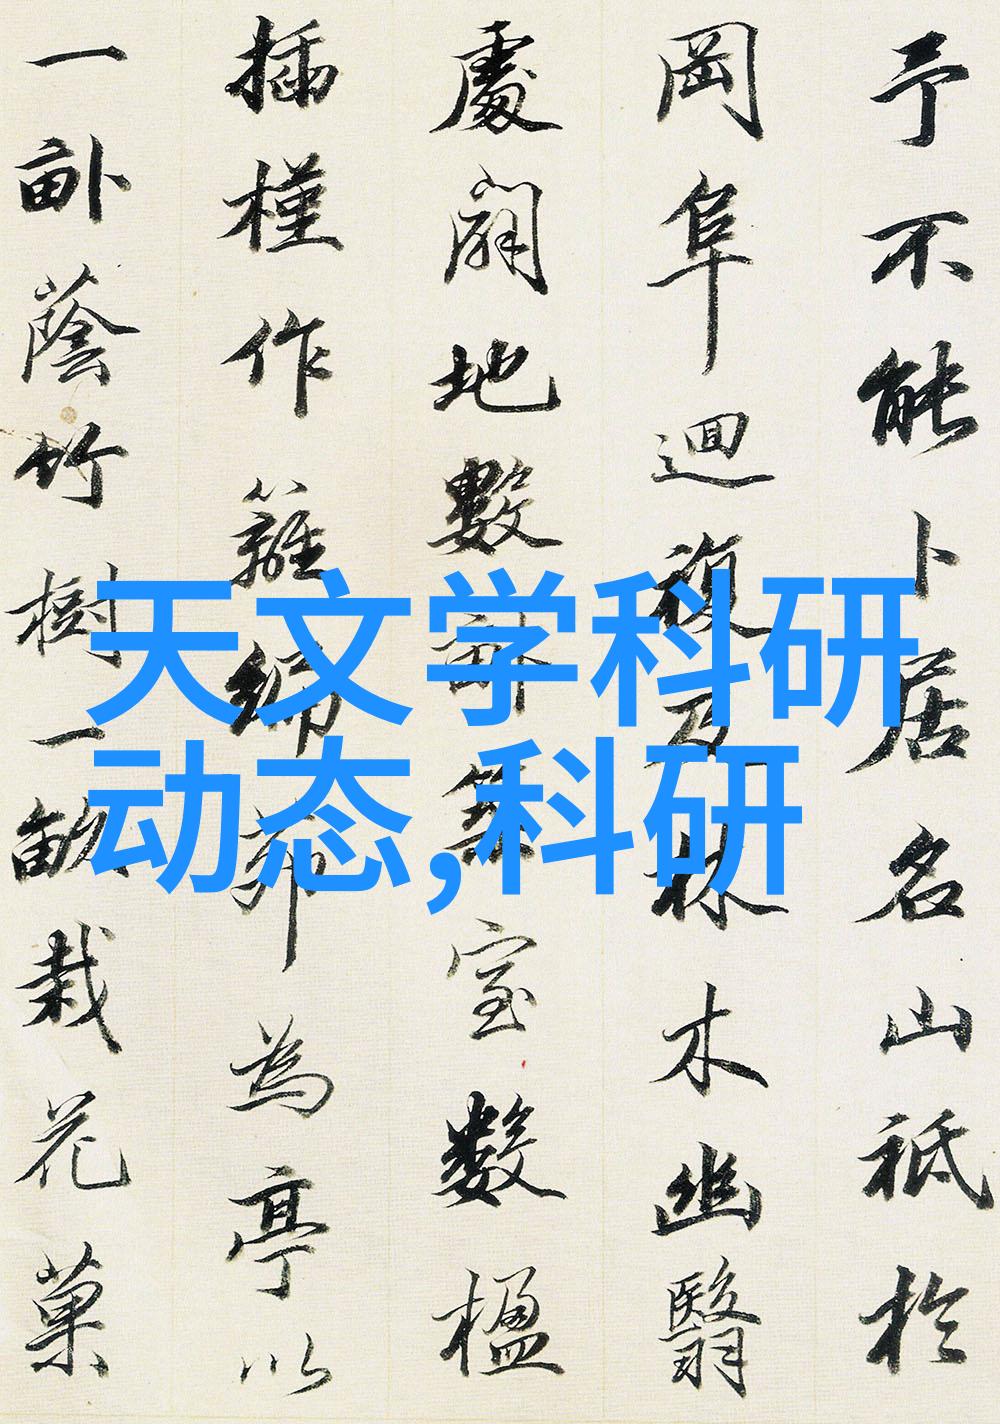 予不能卜居名山祗於
岡阜迴複及林木幽翳
處闢地數畝築室數楹
插槿作籬編茆為亭以
一畝蔭竹樹一畝栽花菓
天文学科研
动态,科研